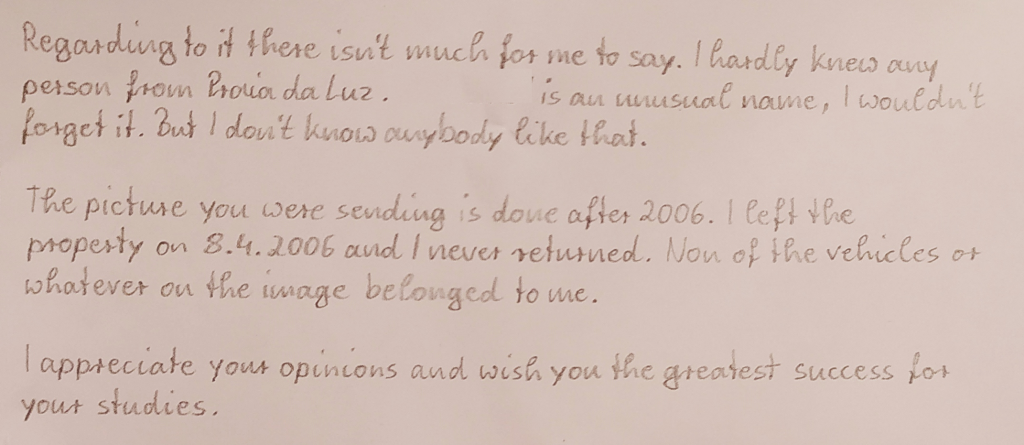 Regarding to it there isn't much for me to say. I hardly knew any
person from Praia da Luz. is an unusual name, I wouldn't
forget it. But I don't know anybody like that.
The picture you were sending is done after 2006. I left the
property on 8.4.2006 and I never returned. Non of the vehicles or
whatever on the image belonged to me.
I appreciate your opinions and wish you the greatest success for
your studies.